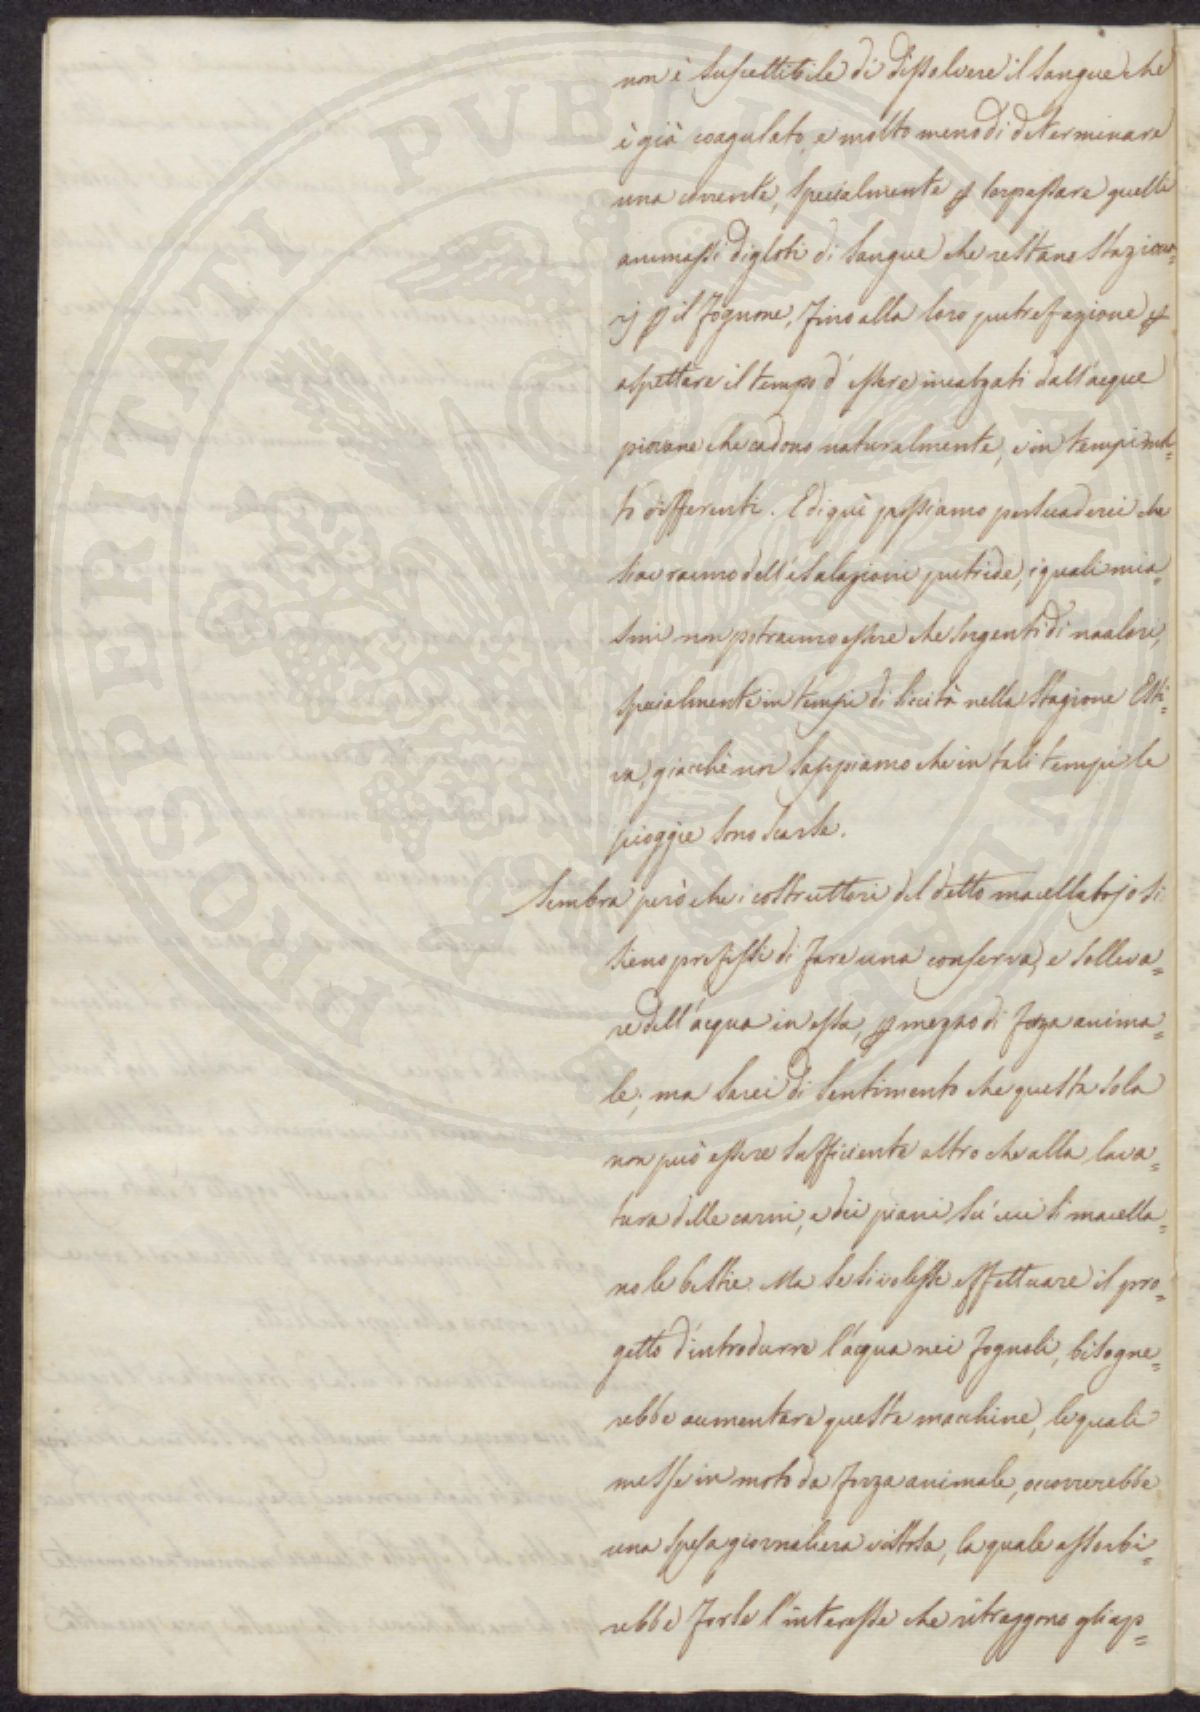 non è suscettibile di dissolvere il sangue che
è già coagulato, e molto meno di determinare
una corrente, specialmente p sorpassare quelli
ammassi di gloti di sangue che restano stazionar=
rj p il fognone, fino alla loro putrefazione p
aspettare il tempo d'essere incalzati dall'acque
piovane che cadono naturalmente, e in tempi mol=
ti differenti. E di quì possiamo persuaderci che
si avranno dell'esalazioni putride, i quali mia=
smi non potranno essere che sorgenti di malori,
specialmente in tempi di siccità nella stagione Esti=
va, giacchè noi sappiamo che in tali tempi le
pioggie sono scarse.
Sembra però che i costruttori del detto macellatojo si
sieno prefissi di fare una conserva, e solleva=
re dell'acqua in essa, p mezzo di forza anima=
le; ma sarei di sentimento che questa sola
non può essere sufficiente altro che alla lava=
tura delle carni, e dei piani su' cui si macella=
no le bestie. Ma se si volesse effettuare il pro=
getto d'introdurre l'acqua nei fognoli, bisogne=
rebbe aumentare queste macchine, le quali
messe in moto da forza animale, occorrerebbe
una spesa giornaliera vistosa, la quale assorbi=
rebbe forse l'interesse che ritraggono gli ap=
PROSPERITATI PVBLICAE